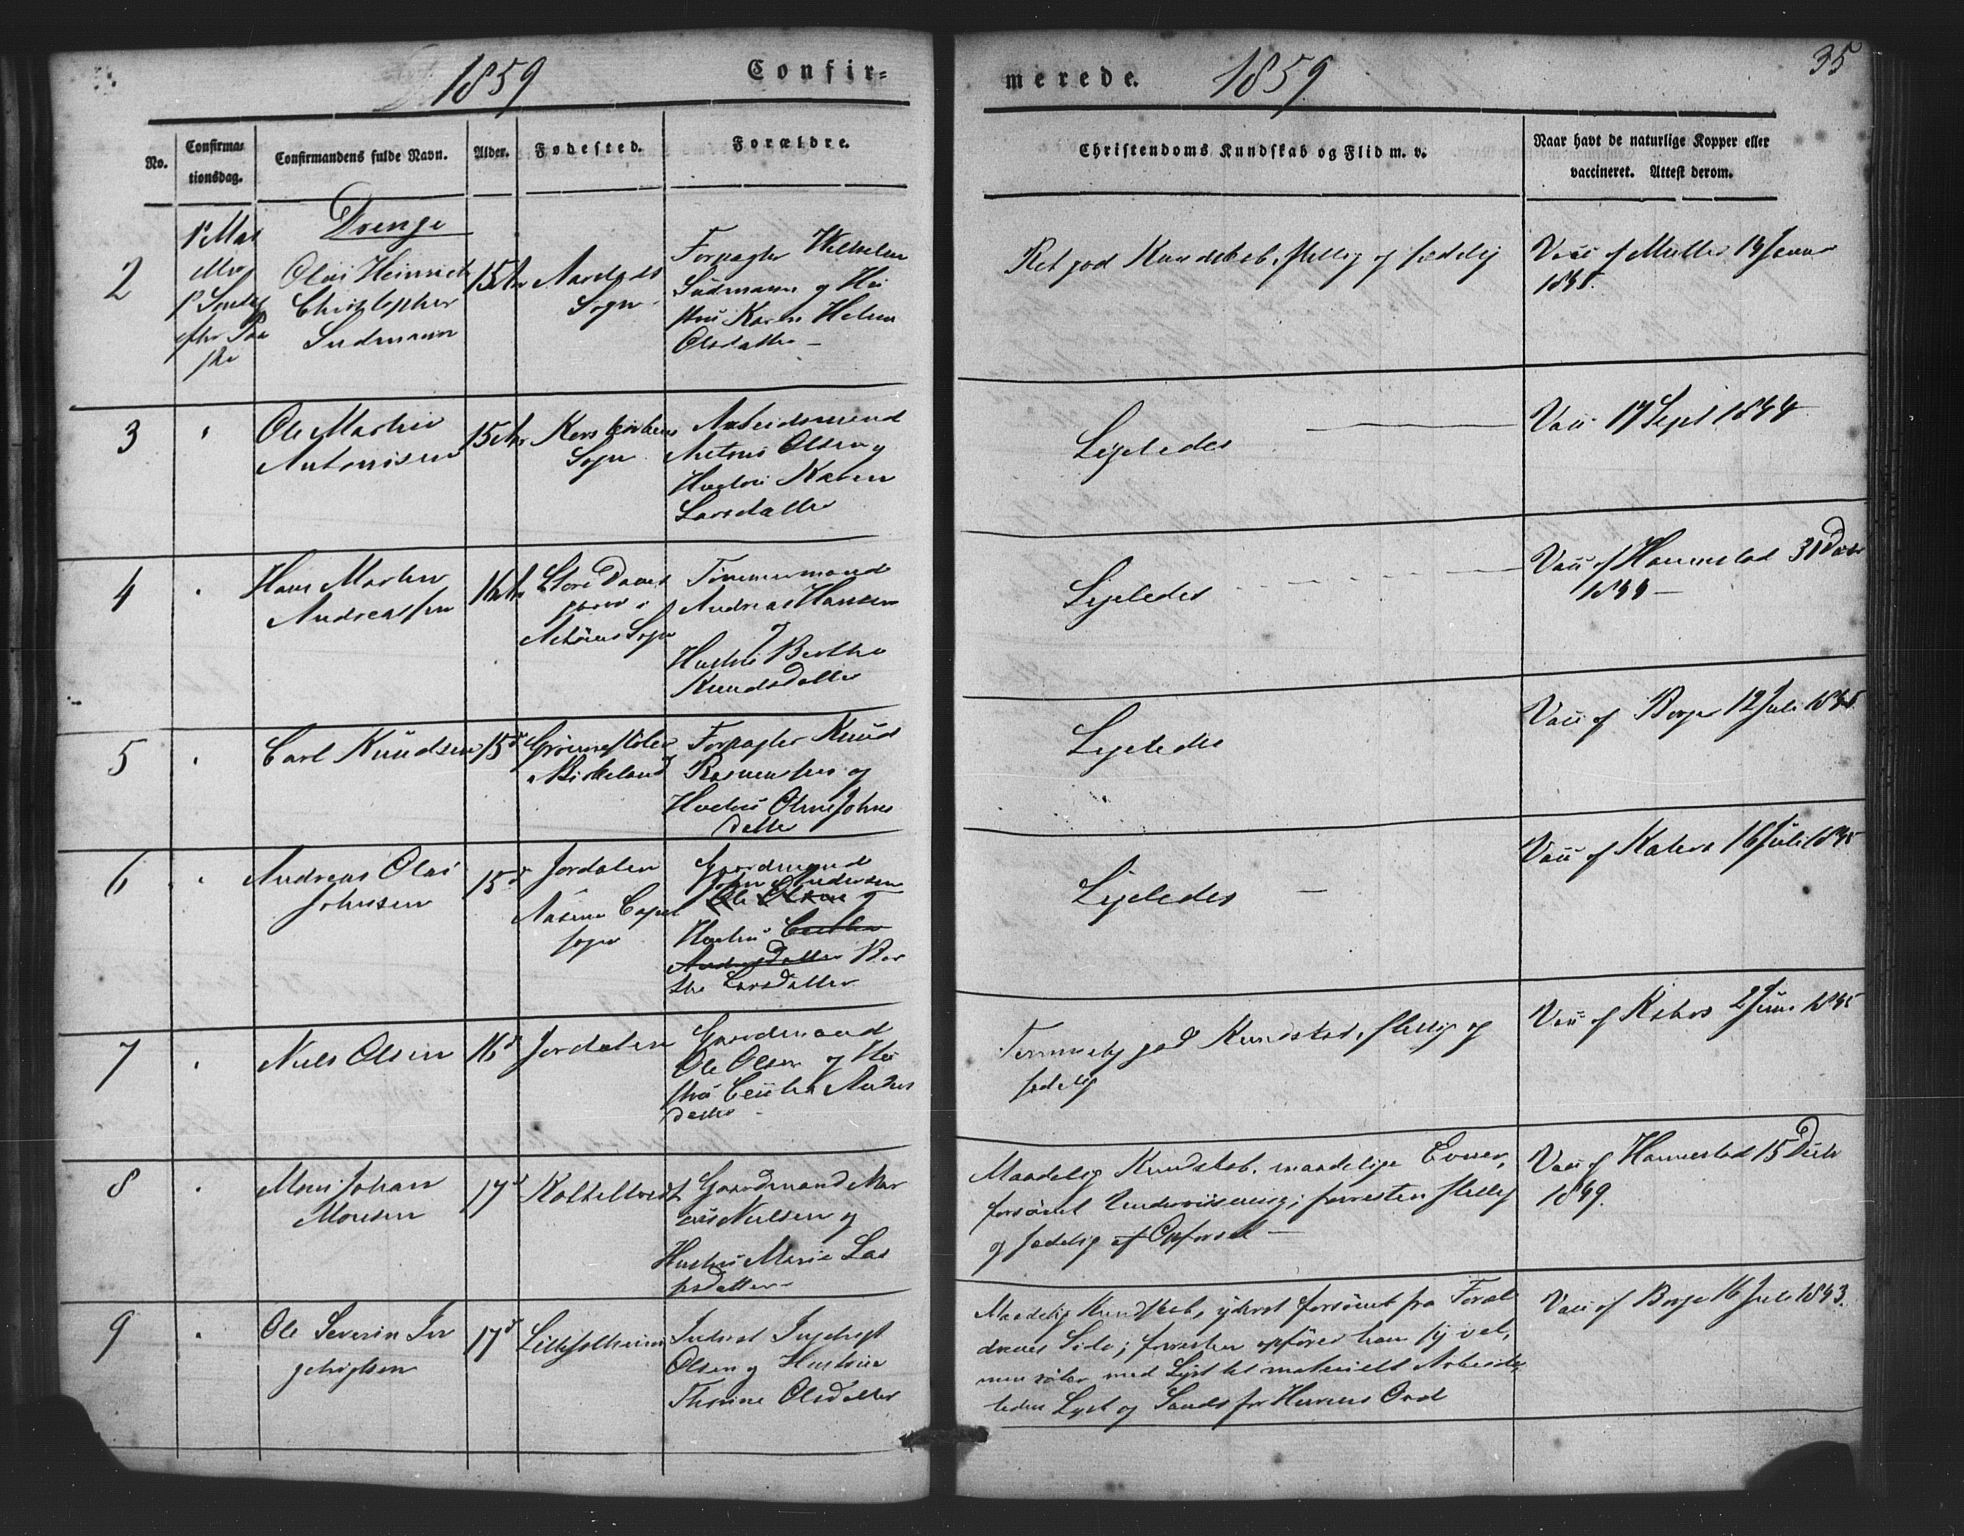 1859 Confir=
merede. 1859. 35
No.
Confirma-
tionsdag.
Confirmandens fulde Navn.
Alder.
Fødested.
Forældre.
Christendoms Kundskab og Flid m. v.
Naar havt de naturlige Kopper eller
vaccineret. Attest derom.
Drenge
2
1ste Mai
Olai Heinrich
Christopher
Sudmann
15 Ar
Sogn
Forpagter Wilhelm
Sudmann og Hu
stru Karen Helene
Olsdatter
Ret god Kundskab, flittig og sædelig
Vacc af Müller 19 Januar
3
Ole Martin
Antonisen
15 Ar
Korskirkens
Sogn
Arbeidsmand
Antoni Olsen og
Hustru Karen
Larsdatter
Ligeledes
Vacc 17 Sept 1844
4
Hans Martin
Andreassen
16 Ar
Store Dams
gaard i
Sogn
Tømmermand
Andreas Hansen
og
Hustru Berthe
Knudsdatter
Ligeledes
Vacc af Hannestad 31 Decbr
1844
5
Carl Knudsen
15
Birkeland
Forpagter Knud
Rasmussen og
Hustru Oline Johns
datter
Ligeledes
Vacc af Berger 12 Juli 1845
6
Andreas Olai
Johnsen
15
Jordalen
Aasene Capel
sogn
Gaardmand
John Andersen
Ole Olsen og
Hustru Cecilia
Andersdatter Ber
the Larsdatter
Ligeledes
Vacc af Kahrs 16 Juli 1845
7
Niels Olsen
16
Jordalen
Gaardmand
Ole Olsen og Hu
stru Cecilia Anders
datter
Temmelig god Kundskab, flittig og
sædelig
Vacc af Kahrs 2 Juni 1845
8
Mons Johan
Monsen
17
Kalkelvedt
Gaardmand
Nielsen og
Hustru Marie La
rsdatter
Maadelig Kundskab, maadelige Evner,
forsømt Underviisning; forresten flittig
og sædelig af Opførsel
Vacc af Hannestad 15 Decbr
1849.
9
Ole Severin In
gebrigtsen
17
Inderst Ingebrigt
Olsen og Hustrue
Thorine Olsdatter
Maadelig Kundskab, yderst forsømt fra Foræl
drenes Side; forresten opfører han sig vel,
men røber med Lyst til materielt Arbeide,
liden Lyst og Sands for Herrens Ord
Vacc af Berger 16 Juli 1843.